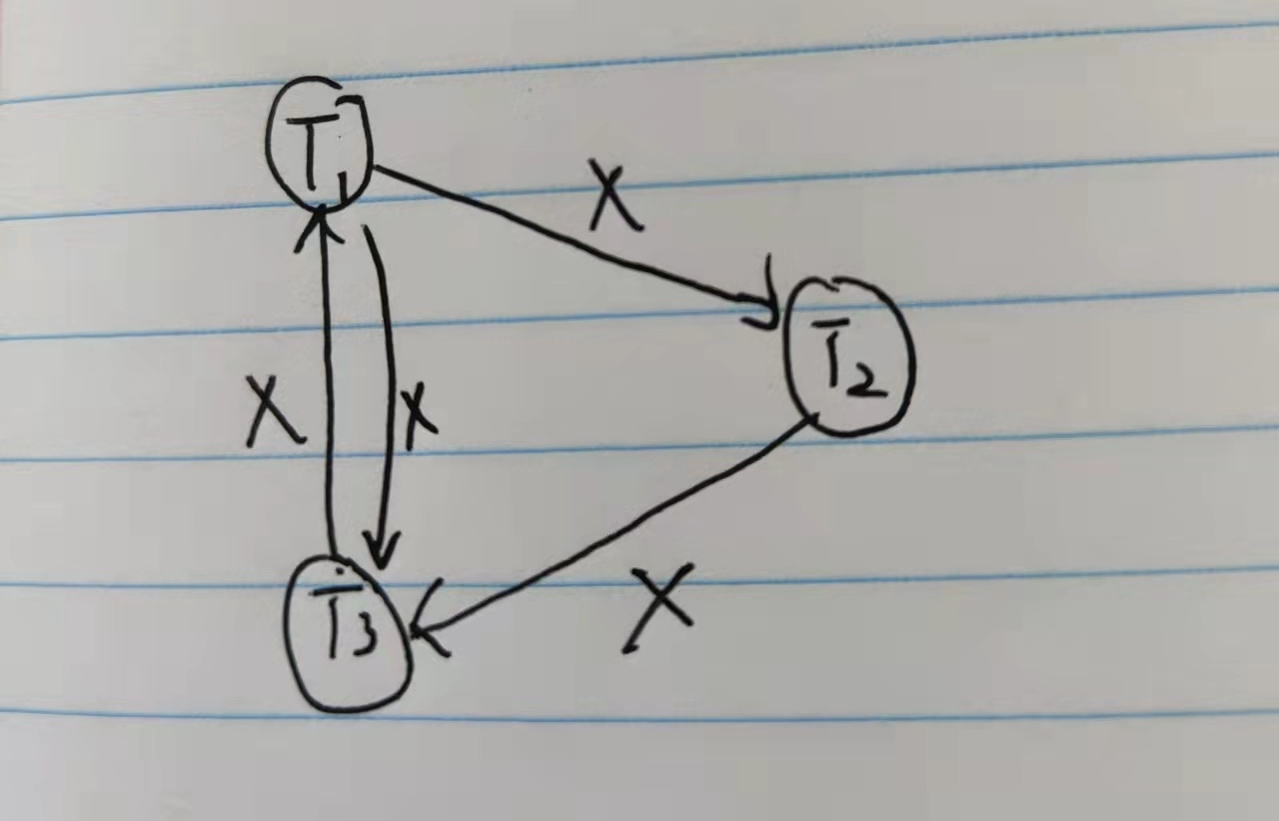 T1
X
T2
X X
T3
X